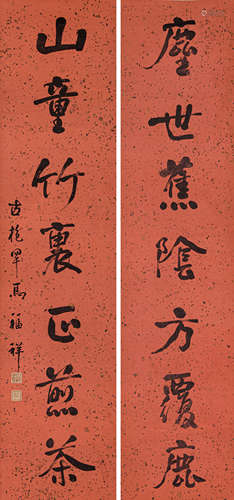 塵世蕉陰方覆鹿
山童竹裏正煎茶
古枹罕馬福祥